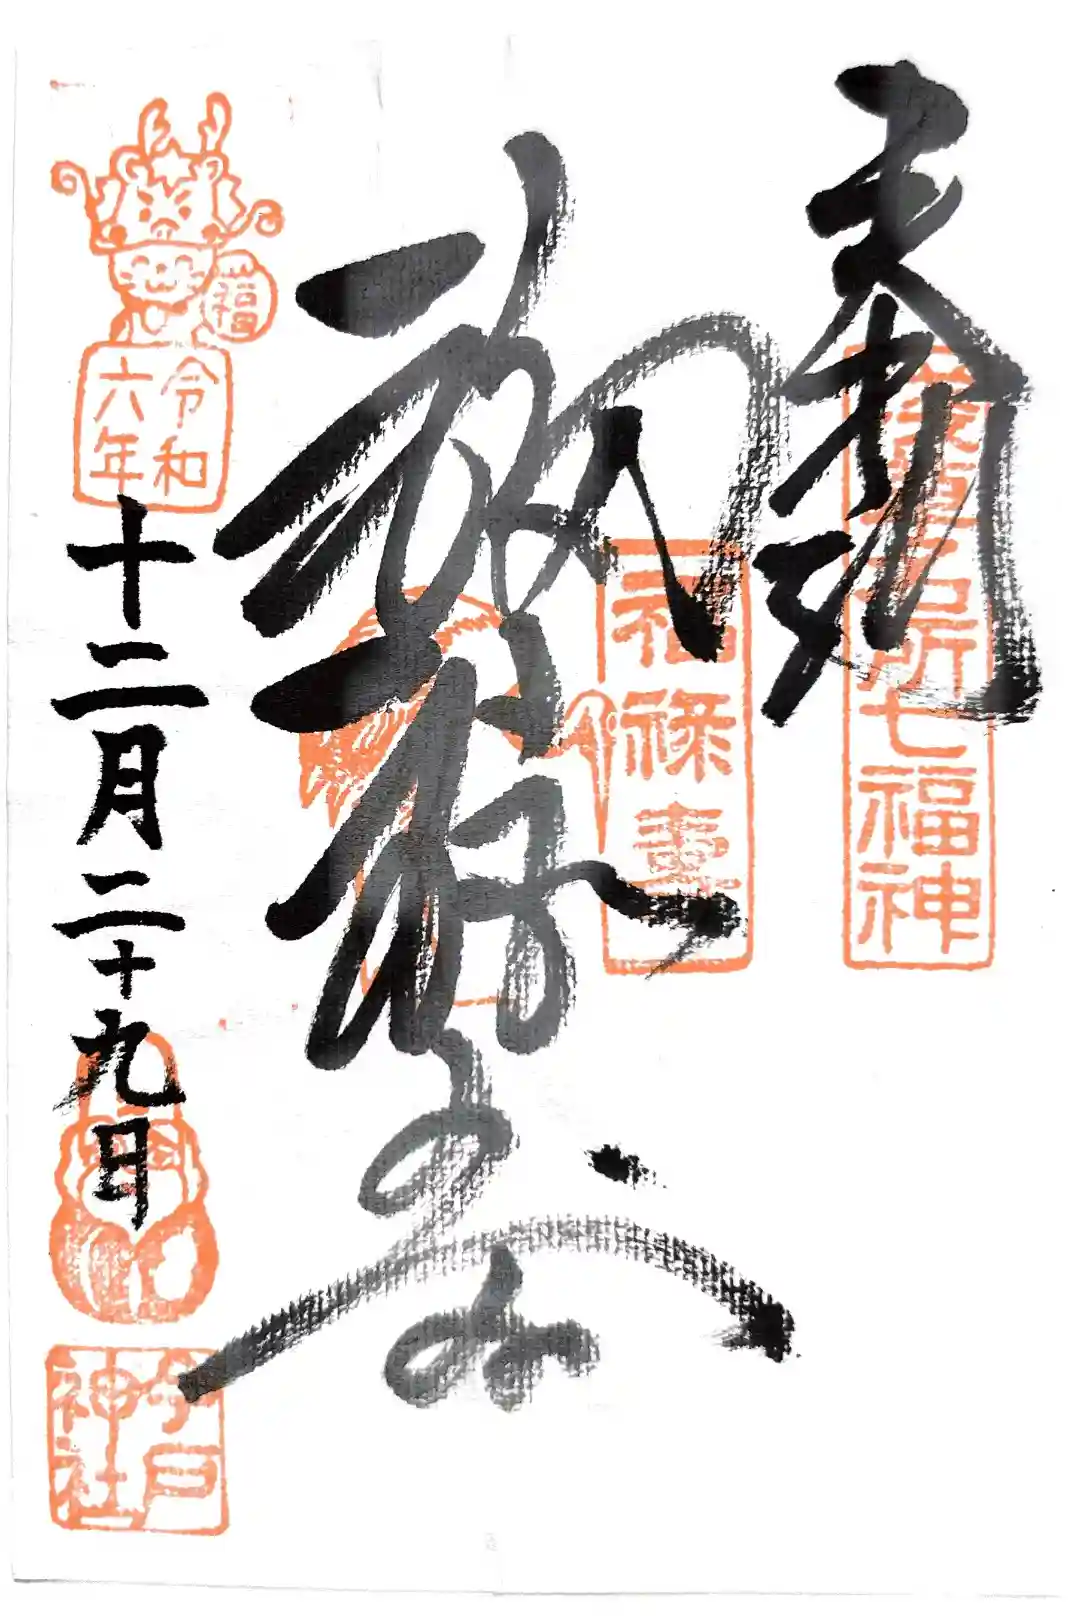 奉拝
浅草名所七福神
福禄壽
福禄壽
福
令和
六年
十二月二十九日
今戸
神社